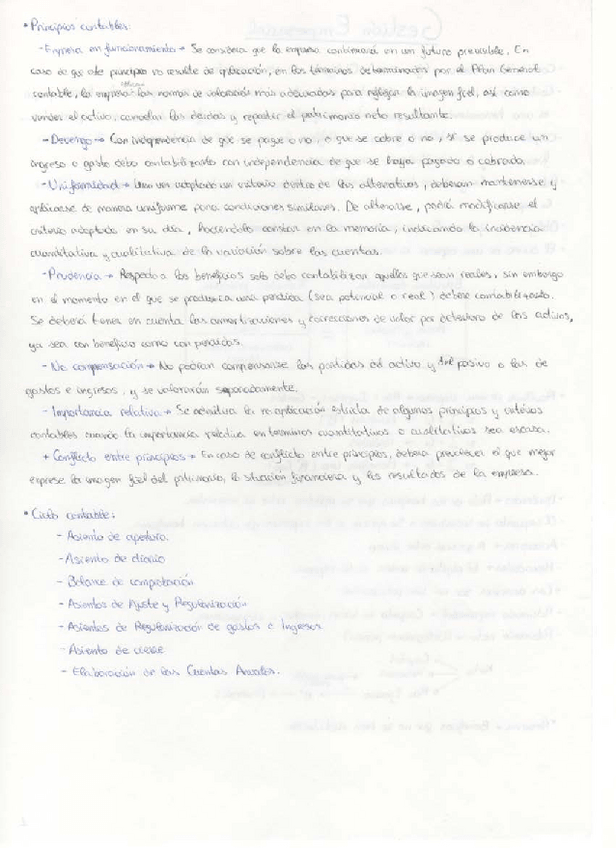 * Principios contables:
- Empresa en funcionamiento → Se considera que la empresa continuará en un futuro previsible. En
caso de que este principio no resulte de aplicación, en los términos determinados por el Plan General
contable, la empresa utilizará las normas de valoración más adecuadas para reflejar la imagen fiel, así como
vender el activo, cancelar las deudas y repartir el patrimonio neto resultante.
- Devengo → Con independencia de que se pague o no, o que se cobre o no, si se produce un
ingreso o gasto debo contabilizarlo con independencia de que se haya pagado o cobrado.
- Uniformidad → Una vez adoptado un criterio dentro de las alternativas, deberán mantenerse y
aplicarse de manera uniforme para condiciones similares. De alterarse, podrá modificarse el
criterio adoptado en su día, haciéndolo constar en la memoria, indicando la incidencia
cuantitativa y cualitativa de la variación sobre las cuentas.
- Prudencia → Respecto a los beneficios solo debo contabilizar aquellos que sean reales, sin embargo
en el momento en el que se produzca una perdida (sea potencial o real) debere contabilizarla.
Se deberá tener en cuenta las amortizaciones y correcciones de valor por deterioro de los activos,
ya sea con beneficio como con perdidas.
- No compensación → No podrán compensarse las partidas del activo y del pasivo o las de
gastos e ingresos, y se valorarán separadamente.
- Importancia relativa → Se admitira la no aplicación estricta de algunos principios y criterios
contables cuando la importancia relativa en terminos cuantitativos o cualitativos sea escasa.
+ Conflicto entre principios = En caso de conflicto entre principios, debera prevalecer el que mejor
exprese la imagen fiel del patrimonio, la situación financiera y los resultados de la empresa.
* Ciclo contable:
- Asiento de apertura.
- Asiento de diario
- Balance de comprobación
- Asientos de Ajuste y Regularización
- Asientos de Regularización de gastos e Ingresos
- Asiento de cierre
- Elaboración de las Cuentas Anuales.